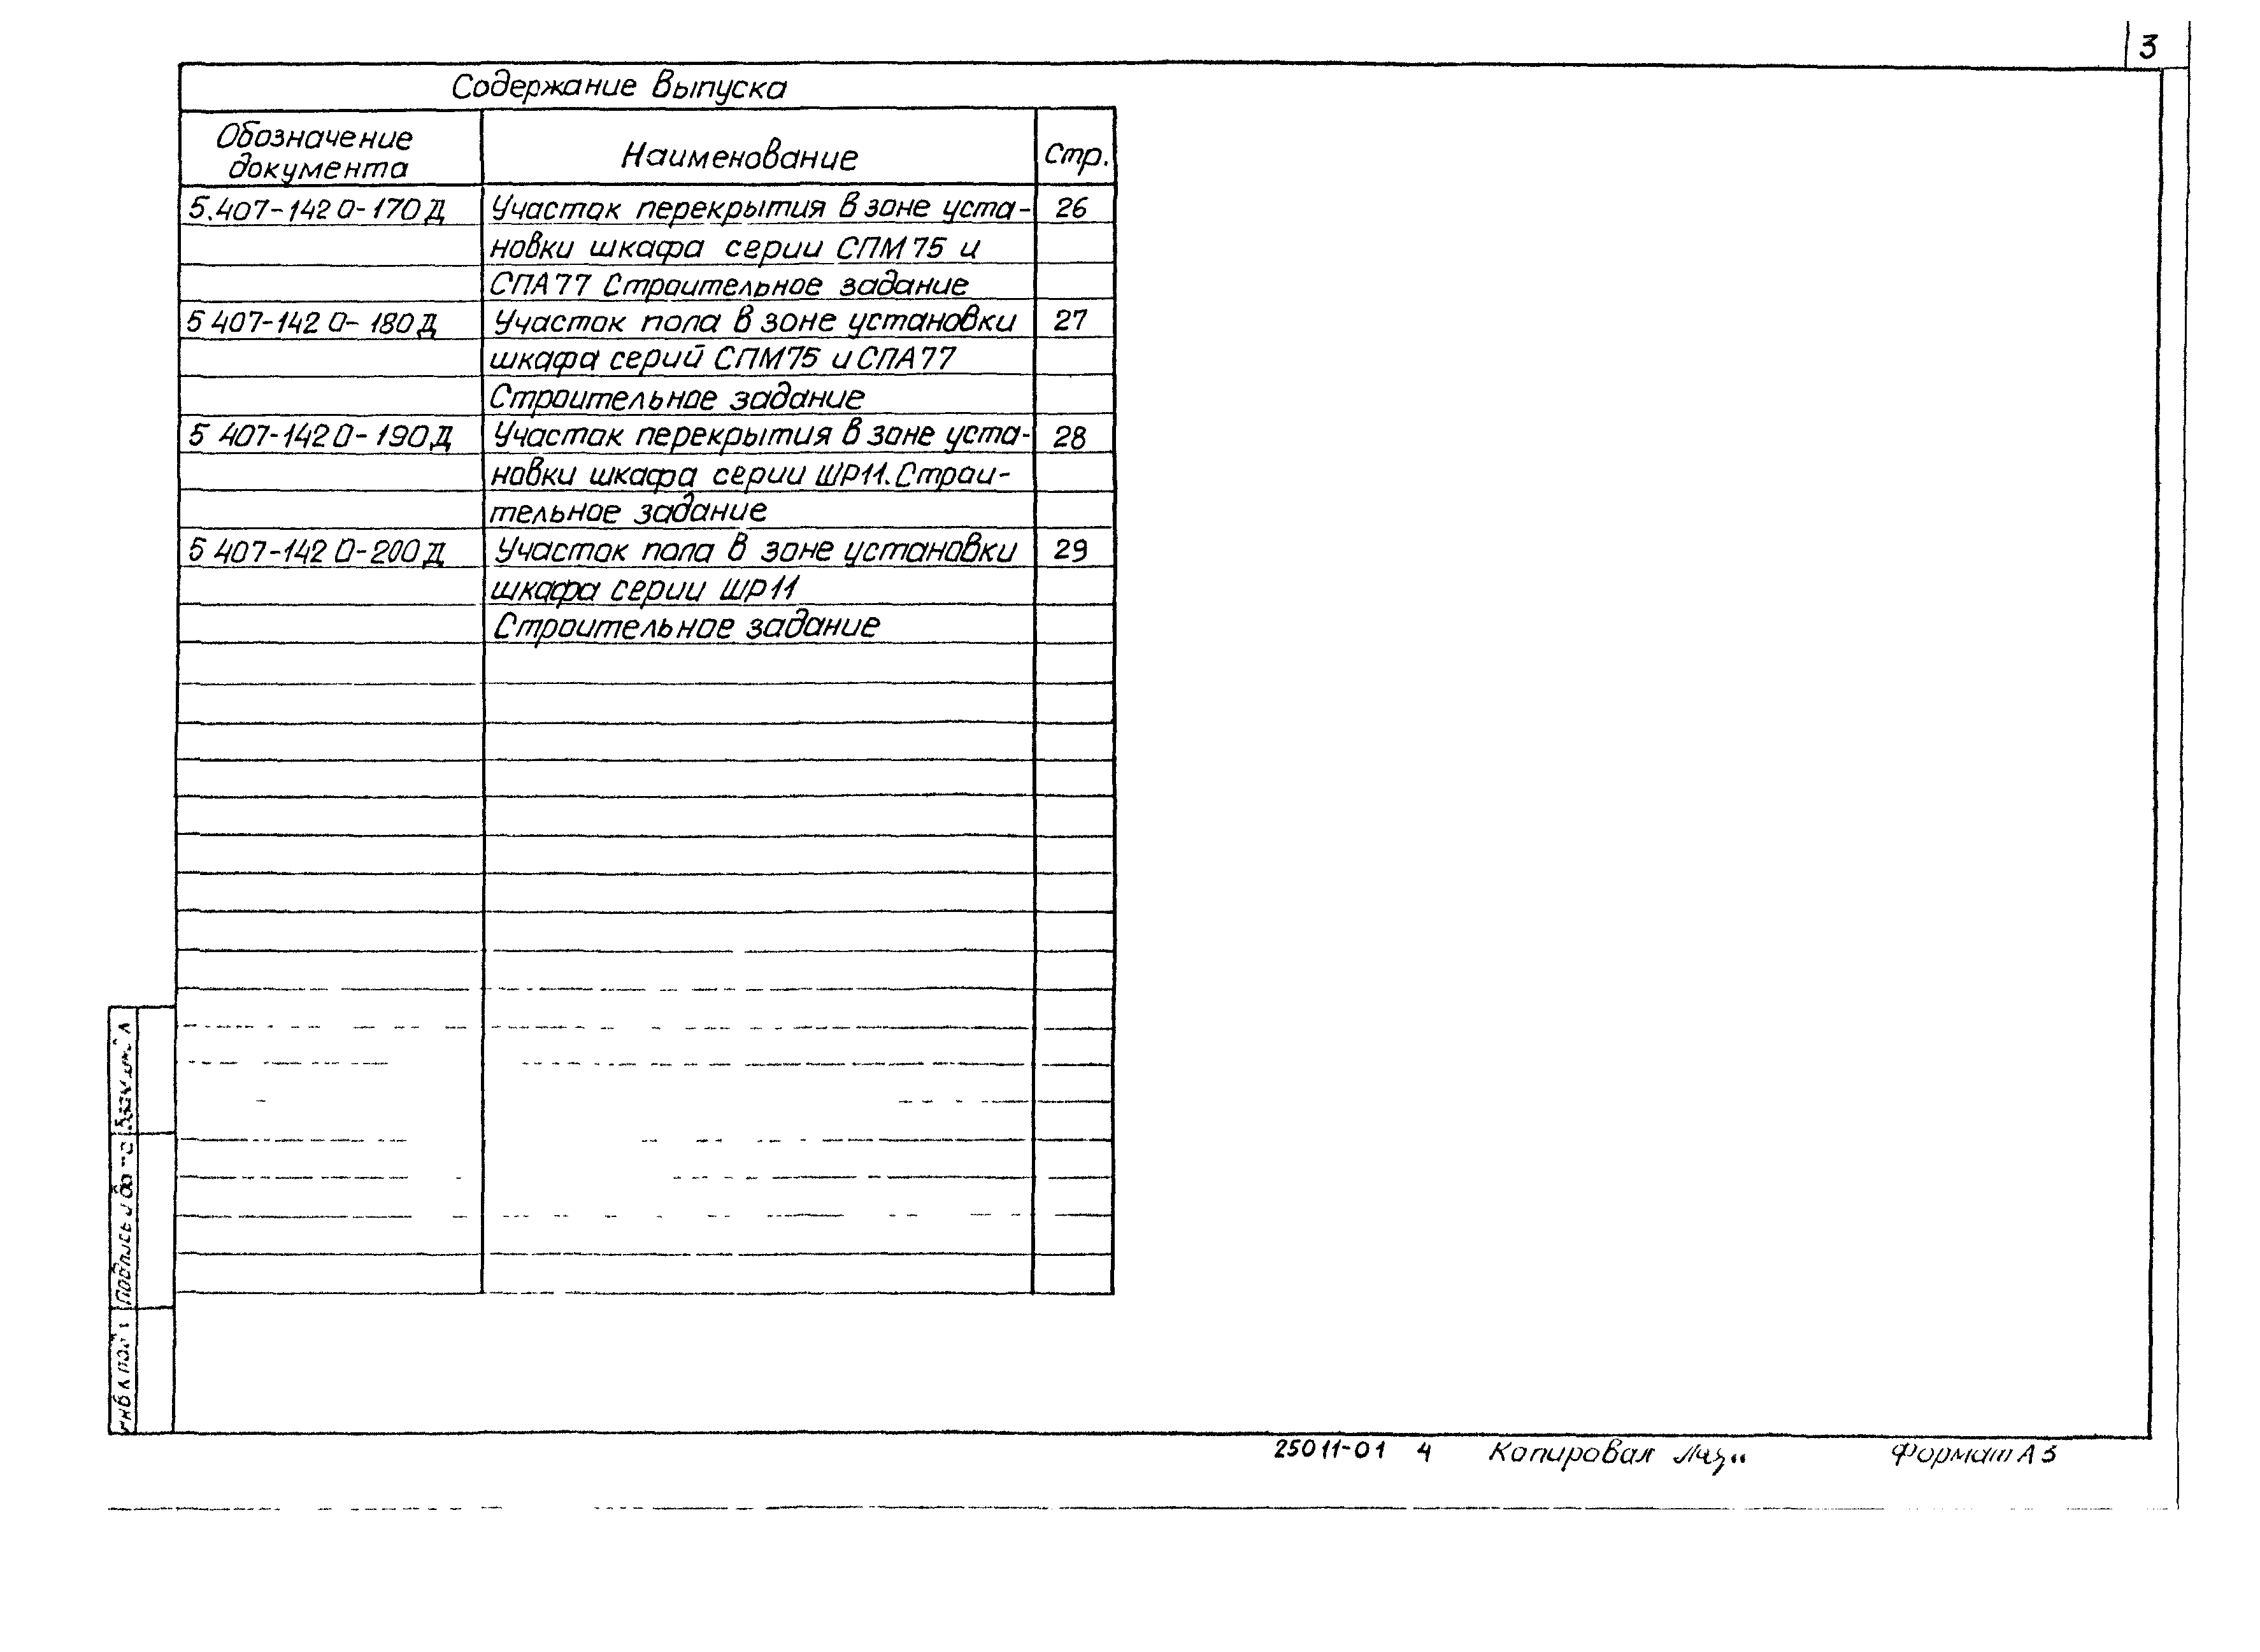 3
Содержание выпуска
Обозначение документа Наименование Стр.
5.407-142 0-170Д Участок перекрытия в зоне уста- 26
новки шкафа серии СПМ75 и
СПА77 Строительное задание
5 407-142 0-180Д Участок пола в зоне установки 27
шкафа серий СПМ75 и СПА77
Строительное задание
5 407-142 0-190Д Участок перекрытия в зоне уста- 28
новки шкафа серии ШР11. Строи-
тельное задание
5 407-142 0-200Д Участок пола в зоне установки 29
шкафа серии ШР11
Строительное задание
Подпись и дата
25011-01 4 Копировал Формат А3